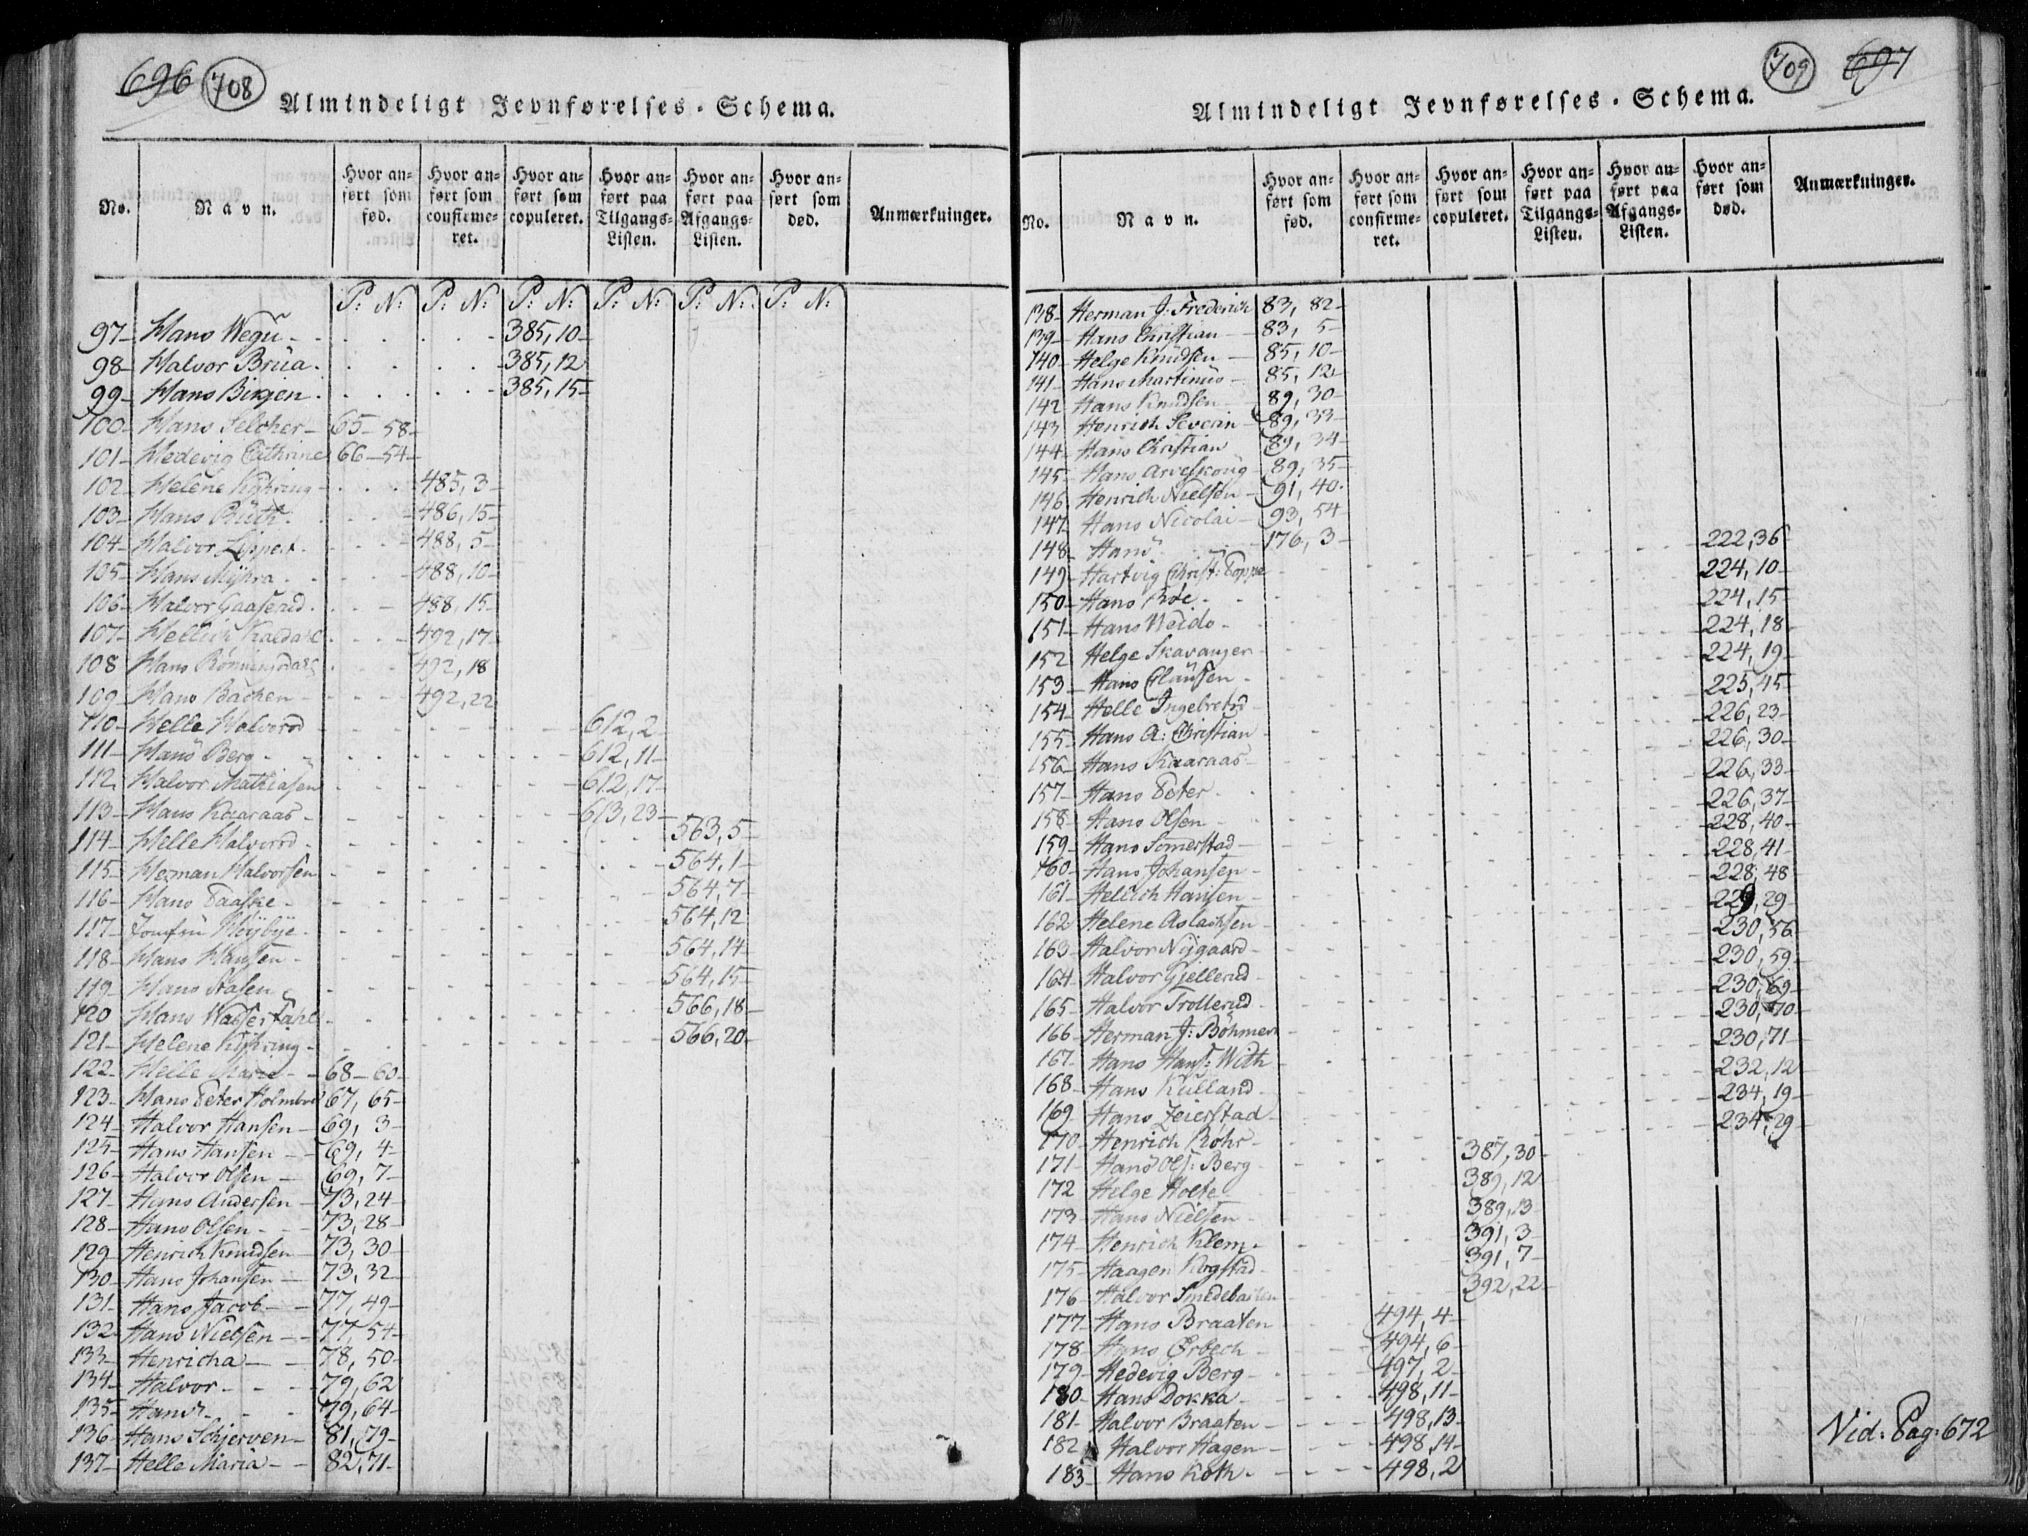 696 708
Almindeligt Jevnførelses-Schema.
No. Navn. Hvor anført som fød. Hvor anført som confirmeret. Hvor anført som copuleret. Hvor anført paa Tilgangs-Listen. Hvor anført paa Afgangs-Listen. Hvor anført som død. Anmærkninger.
P: N: P: N: P: N: P: N: P: N: P: N:
97 Hans Wegü 385, 10
98 Halvor Brüa 385, 12
99 Hans Birjen 385, 15
100 Hans Selcher 65 58
101 Hedevig Cathrine 66 54
102 Helene Kÿhring 485, 3
103 Hans Rüth 486, 15
104 Halvor Lippert 488, 5
105 Hans Mÿhra 488, 10
106 Halvor Gaaserud 488, 15
107 Hellich Kaldahl 492, 17
108 Hans Rønningsdahl 492, 18
109 Hans Bachen 492, 22
110 Helle Halvorsd 612, 2
111 Hans Berg 612, 11
112 Halvor Mathiasen 612, 17
113 Hans Kaaraas 613, 23
114 Helle Halvorsd 563, 5
115 Herman Halvorsen 564, 1
116 Hans Paaske 564, 7
117 Jomfrü Høÿbÿe 564, 12
118 Hans Hansen 564, 14
119 Hans Aasen 564, 15
120 Hans Wasserfahl 566, 18
121 Helene Kÿhring 566, 20
122 Heile Marie 68 60
123 Hans Peter Holmboe 67, 65
124 Halvor Hansen 69, 3
125 Hans Hansen 69, 4
126 Halvor Olsen 69, 7
127 Hans Andersen 73, 24
128 Hans Olsen 73, 28
129 Henrich Knudsen 73, 30
130 Hans Johansen 73, 32
131 Hans Jacob 77, 49
132 Hans Nielsen 77, 54
133 Henricha 78, 50
134 Halvor 79, 62
135 Hans 79, 64
136 Hans Schjerven 81, 79
137 Helle Maria 82, 71
709 697
Almindeligt Jevnførelses-Schema.
No. Navn. Hvor anført som fød. Hvor anført som confirmeret. Hvor anført som copuleret. Hvor anført paa Tilgangs-Listen. Hvor anført paa Afgangs-Listen. Hvor anført som død. Anmærkninger.
138 Herman J: Frederich 83, 82
139 Hans Christian 83, 5
140 Helge Knüdsen 85, 10
141 Hans Martinus 85, 12
142 Hans Knudsen 89, 30
143 Henrich Severin 89, 33
144 Hans Christian 89, 34
145 Hans Arveskoug 89, 35
146 Henrich Nielsen 91, 40
147 Hans Nicolai 93, 54
148 Hans 176, 3 222, 36
149 Hartvig Christ: Poppe 224, 10
150 Hans Roe 224, 15
151 Hans Weido 224, 18
152 Helge Skavanger 224, 19
153 Hans Claüsen 225, 45
154 Helle Ingebretsd 226, 23
155 Hans A: Christian 226, 30
156 Hans Kaaraas 226, 33
157 Hans Peter 226, 37
158 Hans Olsen 228, 40
159 Hans Somerstad 228, 41
160 Hans Johansen 228, 48
161 Hellich Hansen 229, 29
162 Helene Aslachsen 230, 56
163 Halvor Nÿgaard 230, 59
164 Halvor Gjellerud 230, 69
165 Halvor Trollerud 230, 70
166 Herman J: Böhmer 230, 71
167 Hans Hans: With 232, 12
168 Hans Kulland 234, 19
169 Hans Zeierstad 234, 29
170 Henrich Rohr 387, 30
171 Hans Ols: Berg 389, 12
172 Helge Holte 389, 13
173 Hans Nielsen 391, 3
174 Henrich Klem 391, 7
175 Haagen Kogstad 392, 22
176 Halvor Smedebakken
177 Hans Braaten 494, 4
178 Hans Ørbech 494, 6
179 Hedevig Berg 497, 2
180 Hans Dokka 498, 11
181 Halvor Braaten 498, 13
182 Halvor Hagen 498, 14
183 Hans Koth 498, 2
Vid: Pag: 672